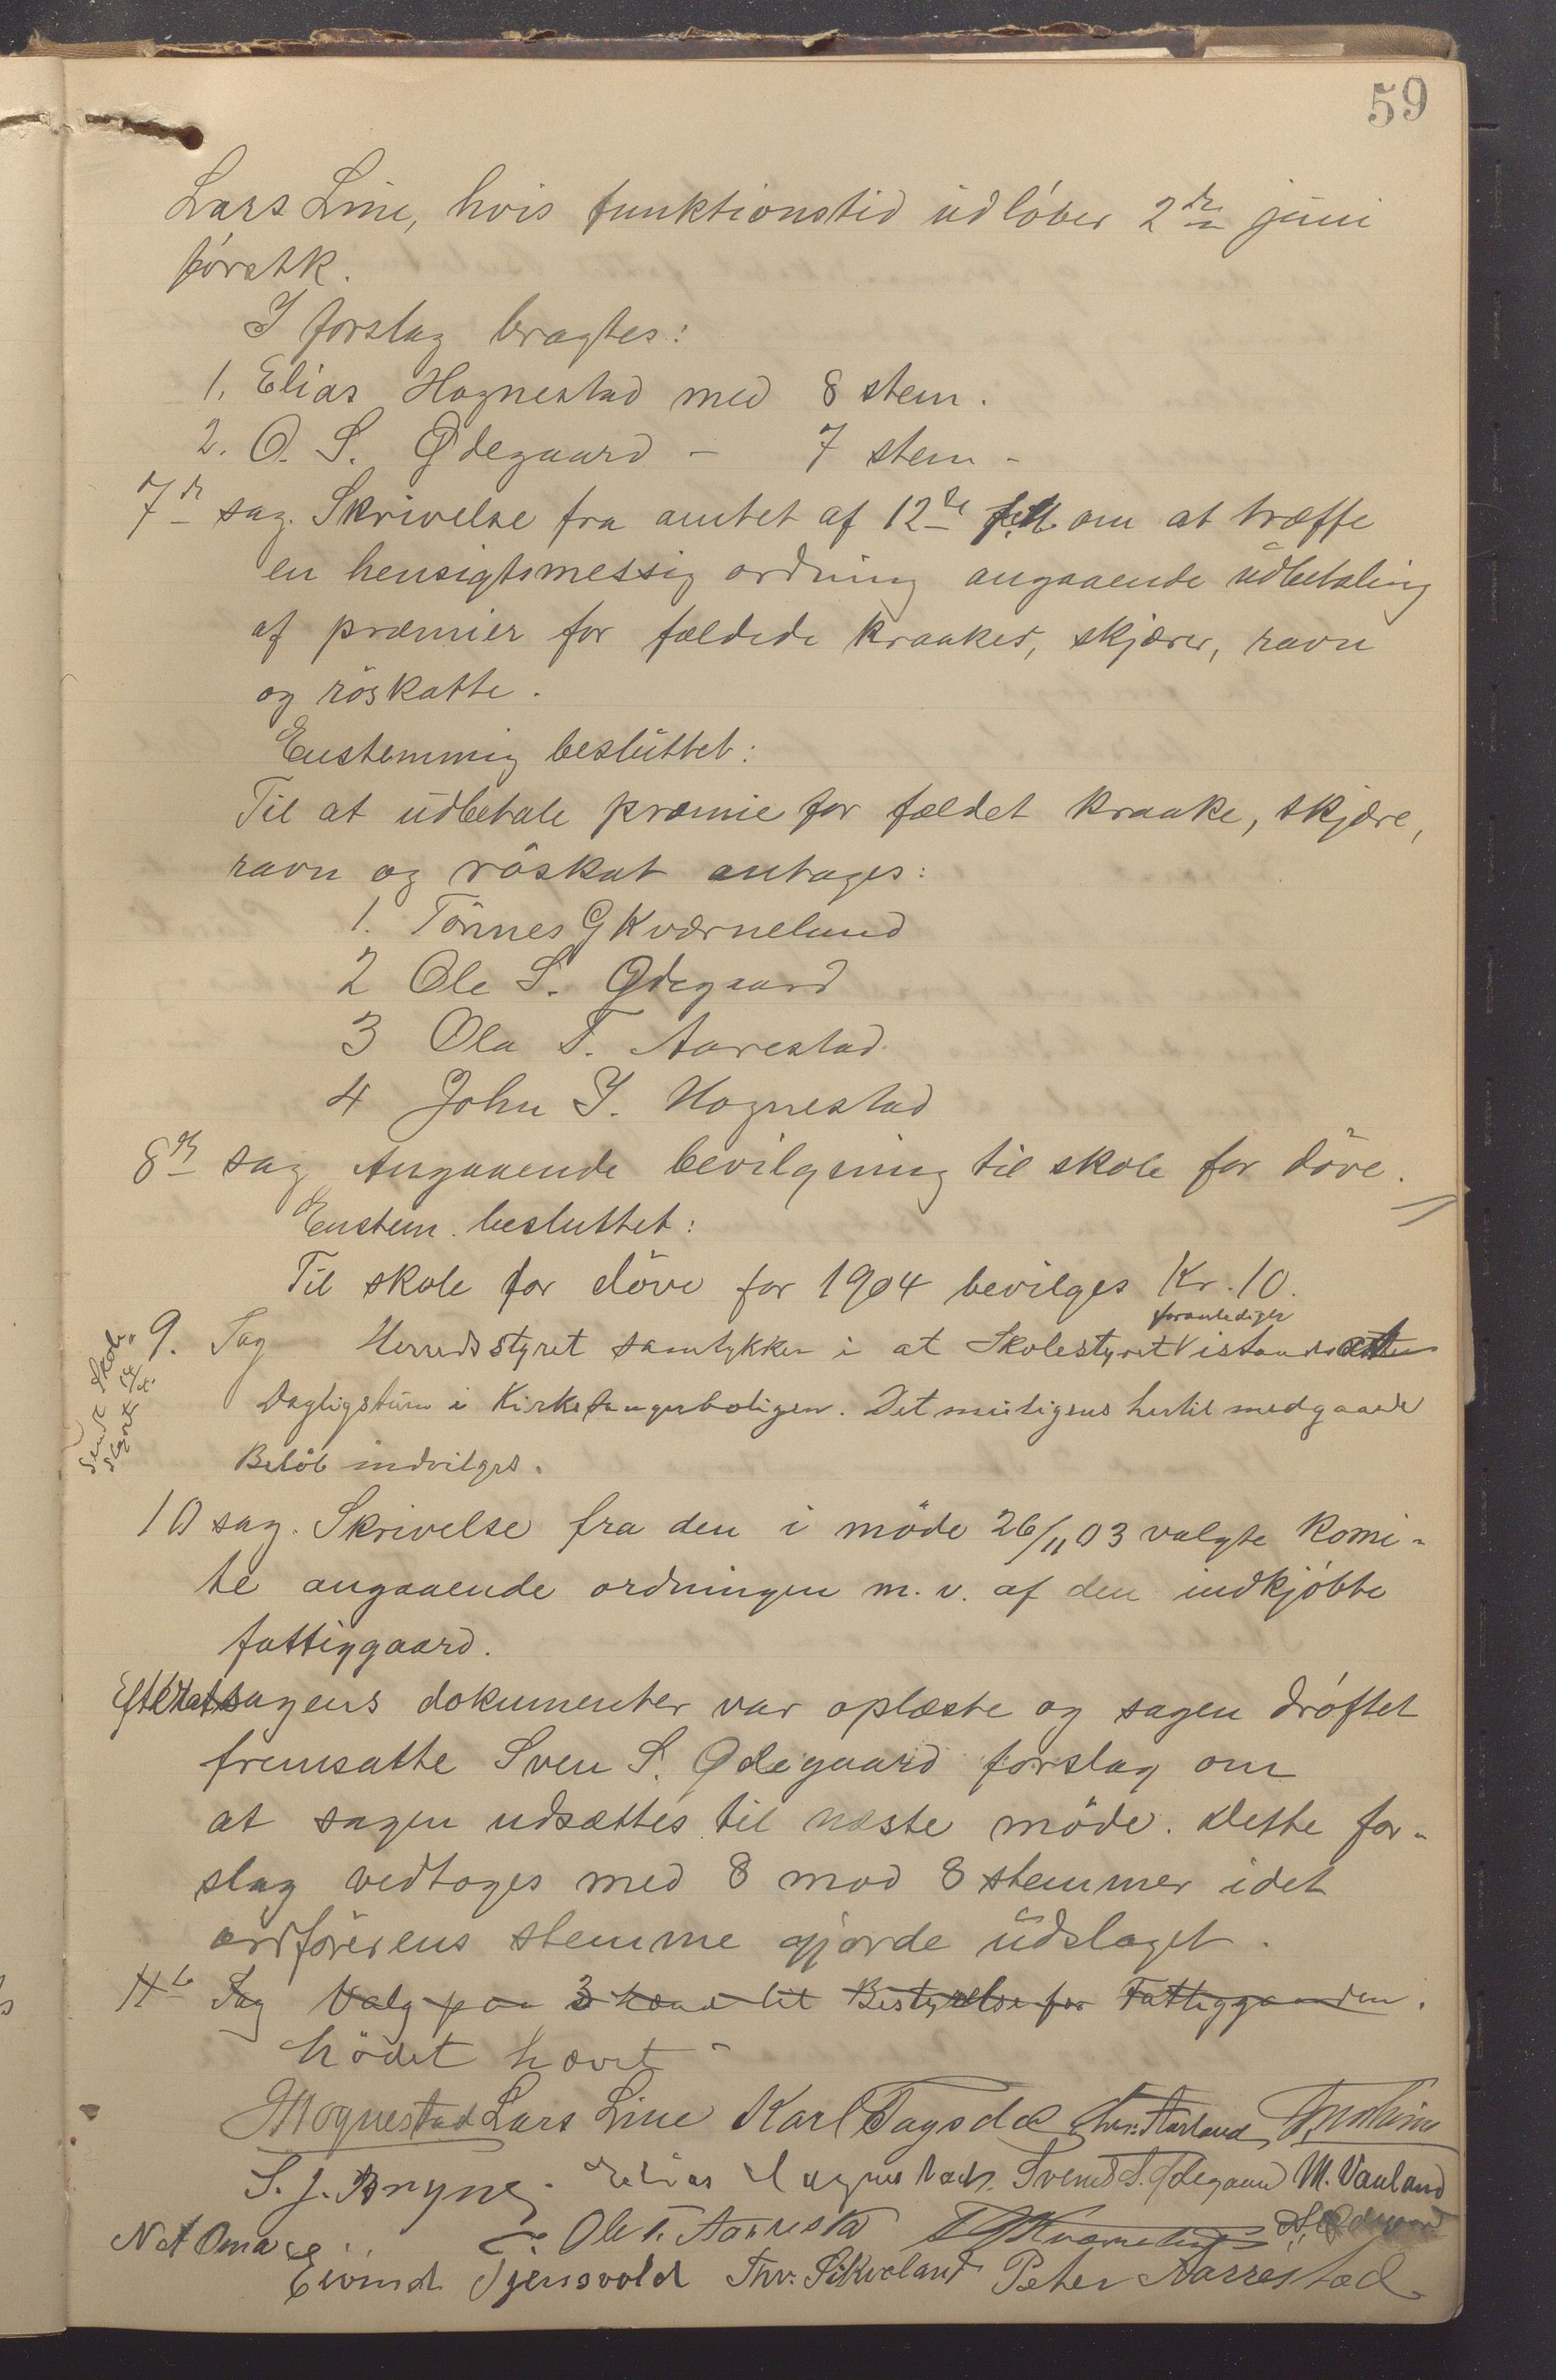 59
Lars Line, hvis funktionstid udløber 2den juni
førstk.
I forslag bragtes:
1. Elias Hognestad med 8 stem.
2. O. S. Ødegaard - 7 stem -
7de sag. Skrivelse fra amtet af 12te om at træffe
en hensigtsmessig ordning angaaende udbetaling
af præmier for fældede kraaker, skjærer, ravn
og röskatte.
Enstemmig besluttet:
Til at udbetale præmie for fældet kraake, skjære,
ravn og röskat antages:
1. Tönnes G Kværnelund
2 Ole S. Ødegaard
3 Ola T. Aarestad
4 John I. Hognestad
8de sag Angaaende bevilgning til skole for döve.
Enstem. besluttet:
Til skole for döve for 1904 bevilges Kr. 10.
foranlediger
9. Sag Herredsstyret samtykker i at Skolestyret istandsætter
Dagligstuen i Kirkesangerboligen. Det muligens hertil medgaaende
Belöb indvilges.
Sendt Skole-
styret
10 sag. Skrivelse fra den i möde 26/11 03 valgte komi-
te angaaende ordningen m. v. af den indkjøbte
fattiggaard.
Efterat sagens dokumenter var oplæste og sagen drøftet
fremsatte Sven S. Ødegaard forslag om
at sagen udsættes til næste möde. Dette for-
slag vedtoges med 8 mod 8 stemmer idet
ordförerens stemme gjorde udslaget.
11te Sag Valg paa 3 Mænd til Bestyrelse for Fattiggaarden.
Mödet hævet
Hognestad Lars Line Karl Tagsdal Chr. Aarland
S. J. Bryne. Elias Hognestad. Svend S. Ødegaard M. Vauland
N A Omar Ole T. Aarrestad T G Kværnelund
Eivind Tjensvold Thv. Sikveland Peter Aarrestad